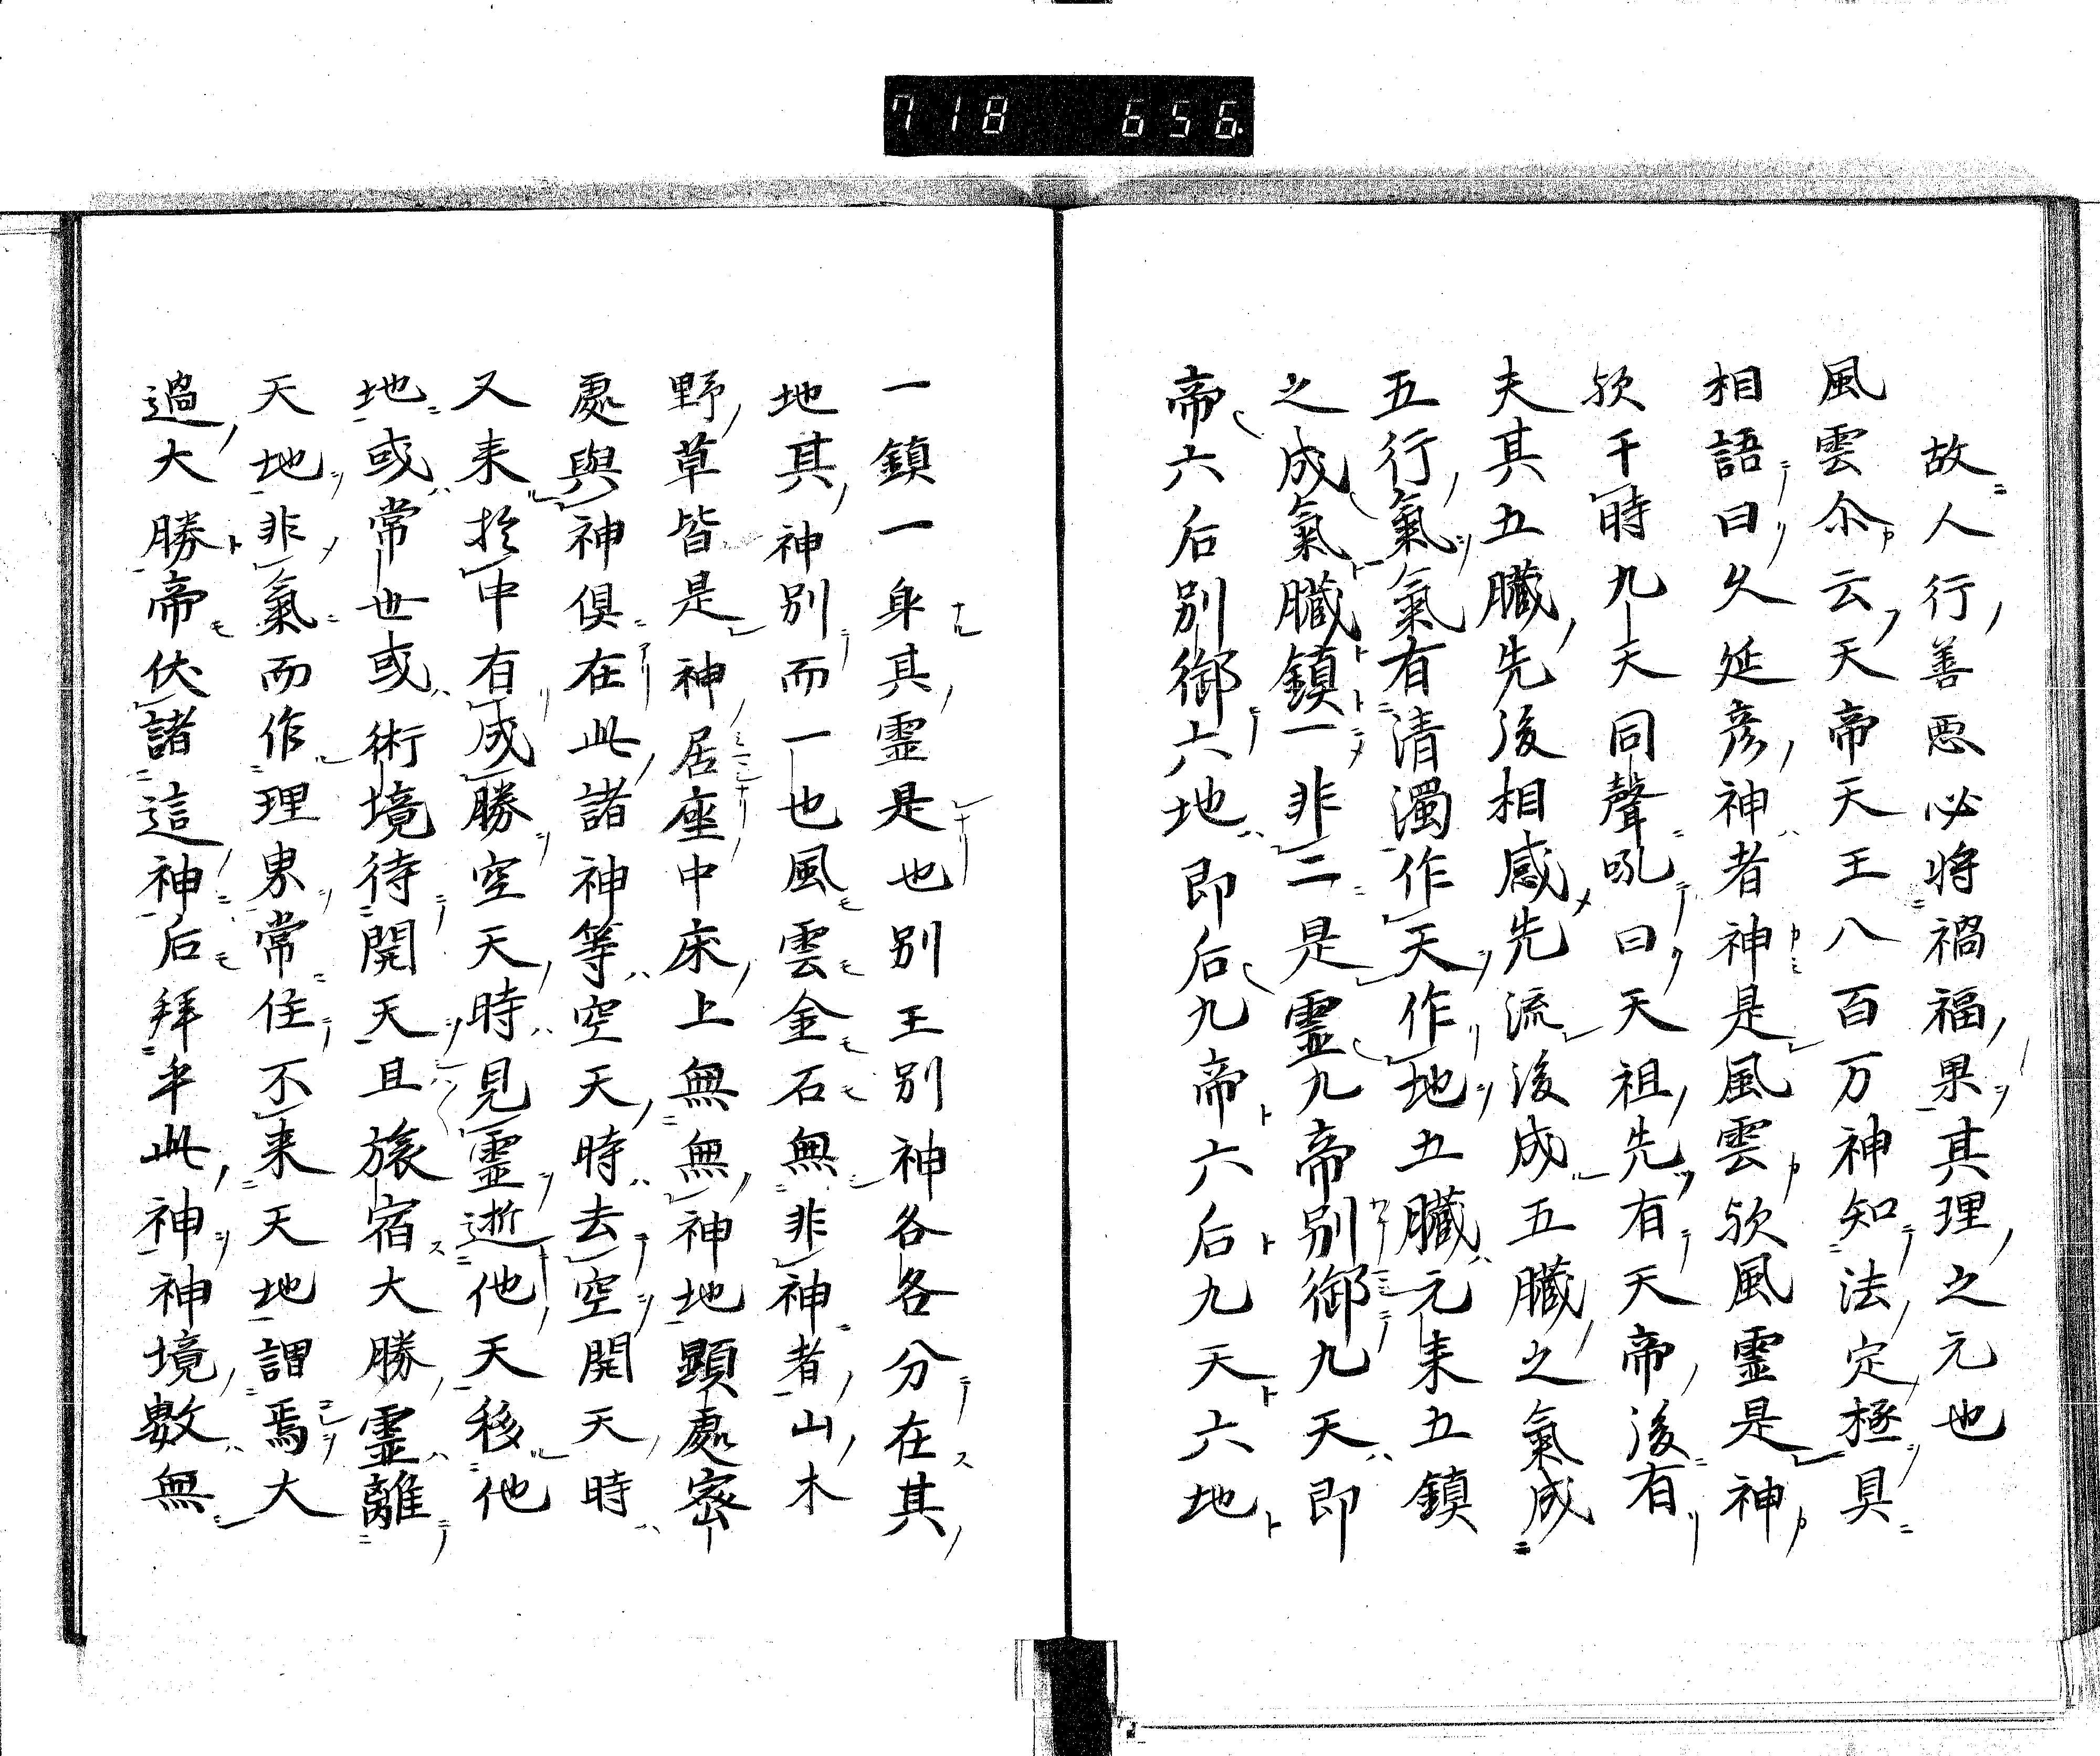 718 656.
故人行善悪必将禍福果其理之元也
風雲尒云天帝天王八百万神知法定極具
相語曰久延彦神者神是風雲欤風霊是神
欤于時九天同聲吼曰天祖先有天帝後有
夫其五臓先後相感先流後成五臓之氣成
五行氣氣有清濁作天作地五臓元来五鎮
之成氣臓鎮一非二是霊九帝別御九天即
帝六后別御六地即后九帝六后九天六地
一鎮一身其霊是也別王別神各各分在其
地其神別而一也風雲金石無非神者山木
野草皆是神居座中床上無無神地顕處密
處與神倶在此諸神等空天時去空開天時
又来於中有成勝空天時見霊逝他天移他
地或常世或術境待開天且旅宿大勝霊離
天地非氣而作理界常住不来天地謂焉大
過大勝帝伏諸這神后拜平此神神境數無